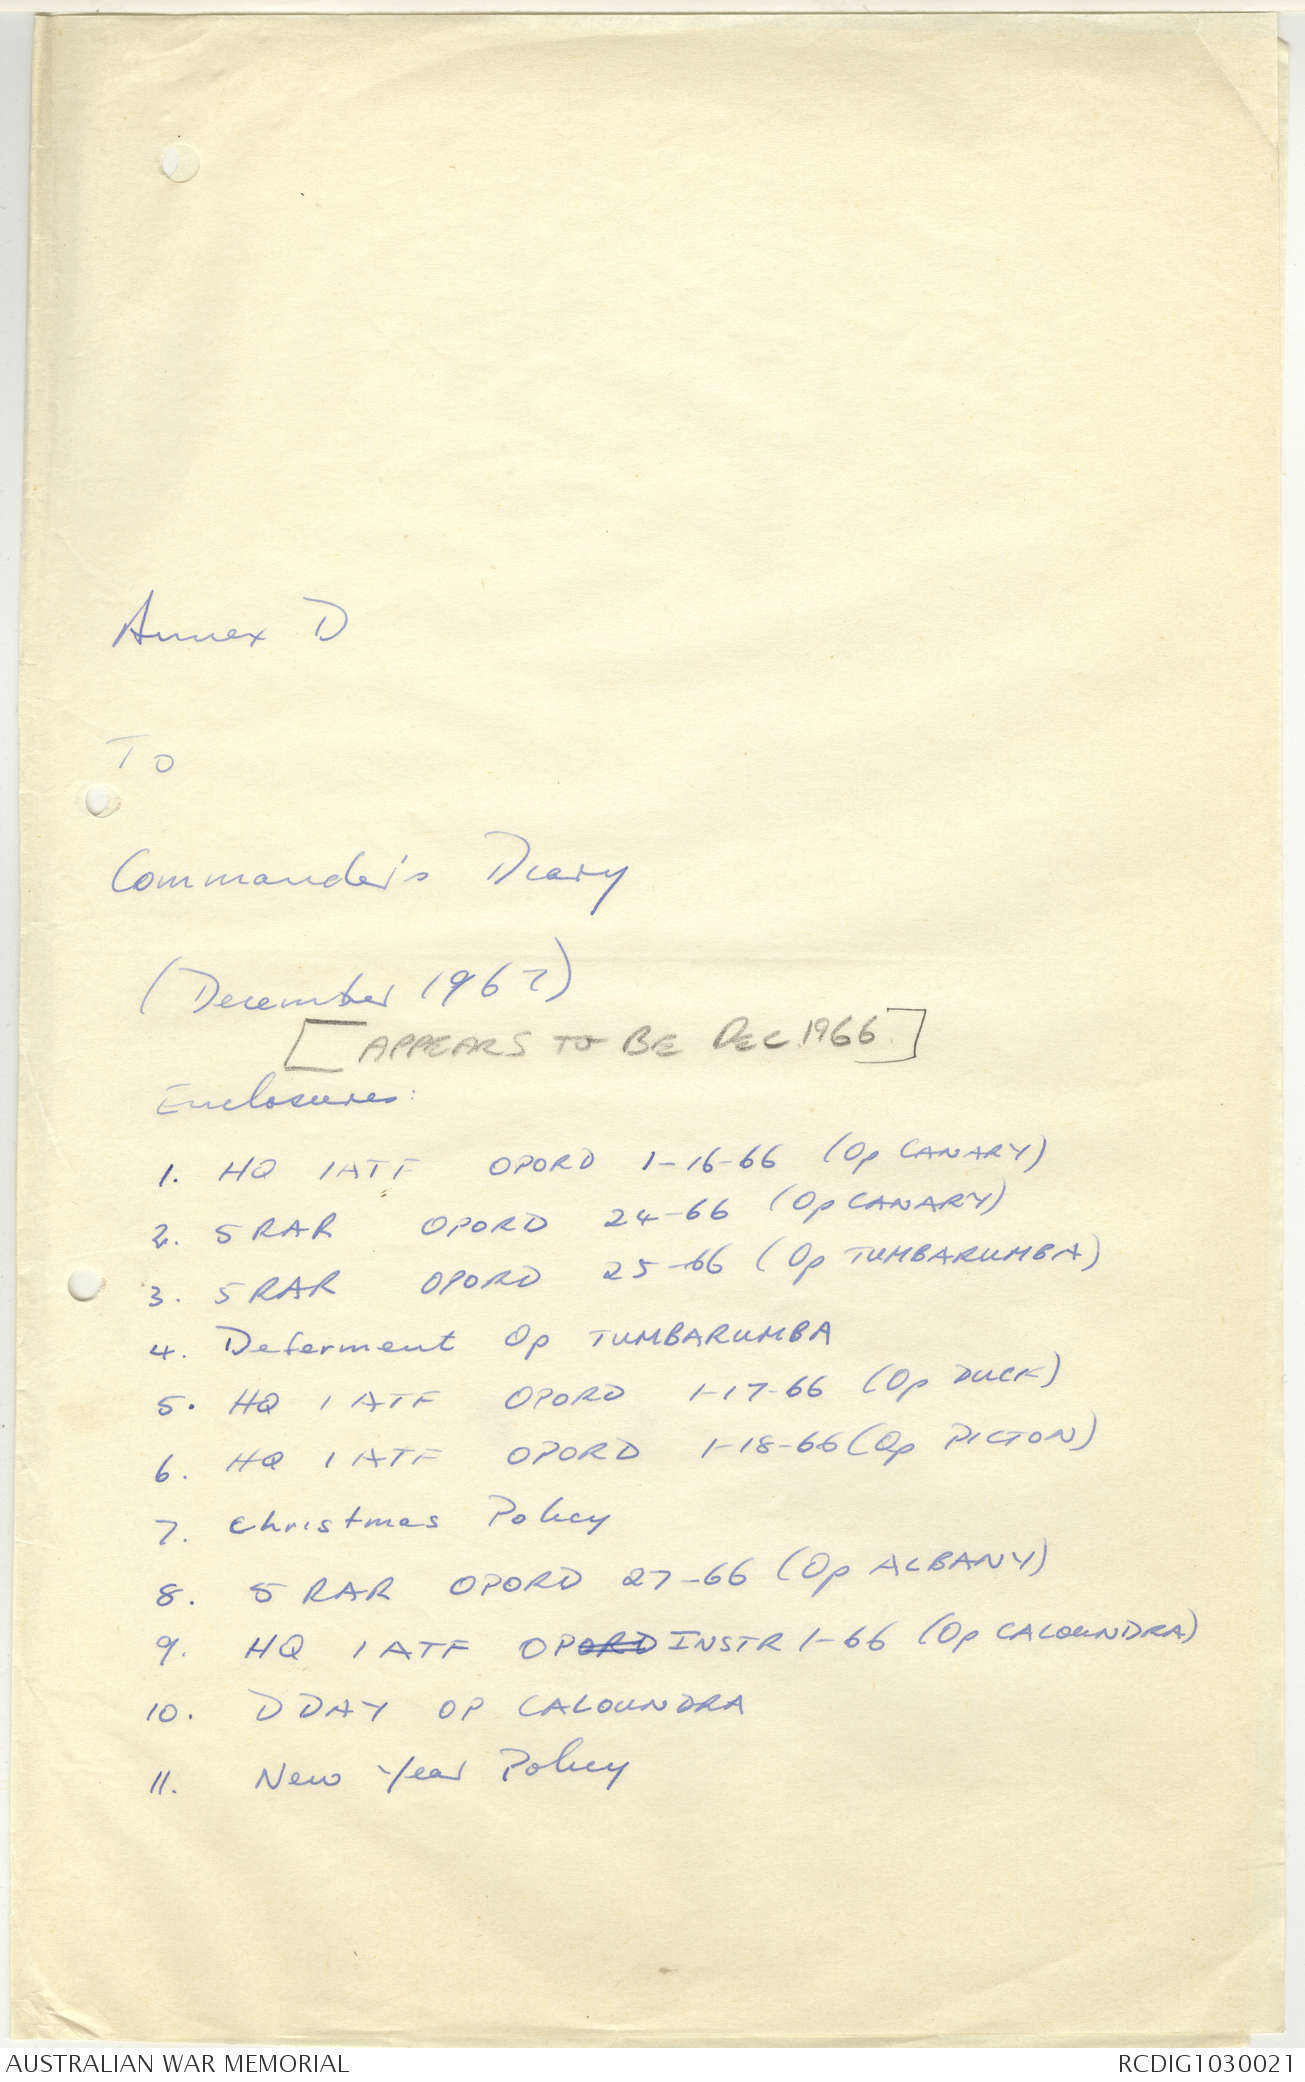 Annex D
To
Commander's Diary
(December 1967)
[APPEARS TO BE DEC. 1966]
Enclosures:
1. HQ 1 ATF OPORD 1-16-66 (Op CANARY)
2. 5 RAR OPORD 24-66 (Op CANARY)
3. 5 RAR OPORD 25-66 (Op TUMBARUMBA)
4. Deferment Op TUMBARUMBA
5. HQ 1 ATF OPORD 1-17-66 (Op DUCK)
6. HQ 1 ATF OPORD 1-18-66 (Op PICTON)
7. Christmas Policy
8. 5 RAR OPORD 27-66 (Op ALBANY)
9. HQ 1 ATF OPORD INSTR 1-66 (Op CALOUNDRA)
10. D DAY OP CALOUNDRA
11. New Year Policy
AUSTRALIAN WAR MEMORIAL RCDIG1030021